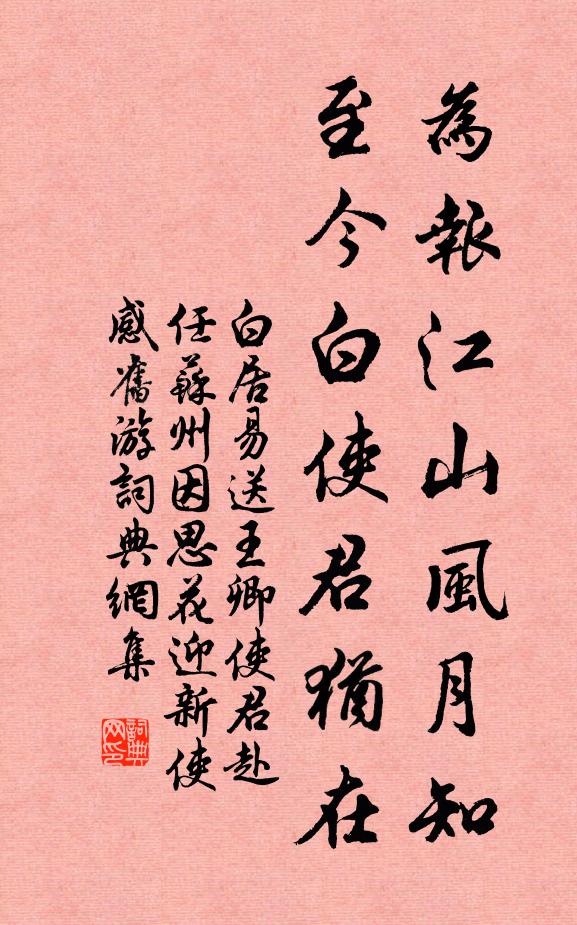 為報江山風月知
至今白使君猶在
白居易送王卿使君赴
任蘇州因思花迎新使
感舊游詞典網集
詞典
网印